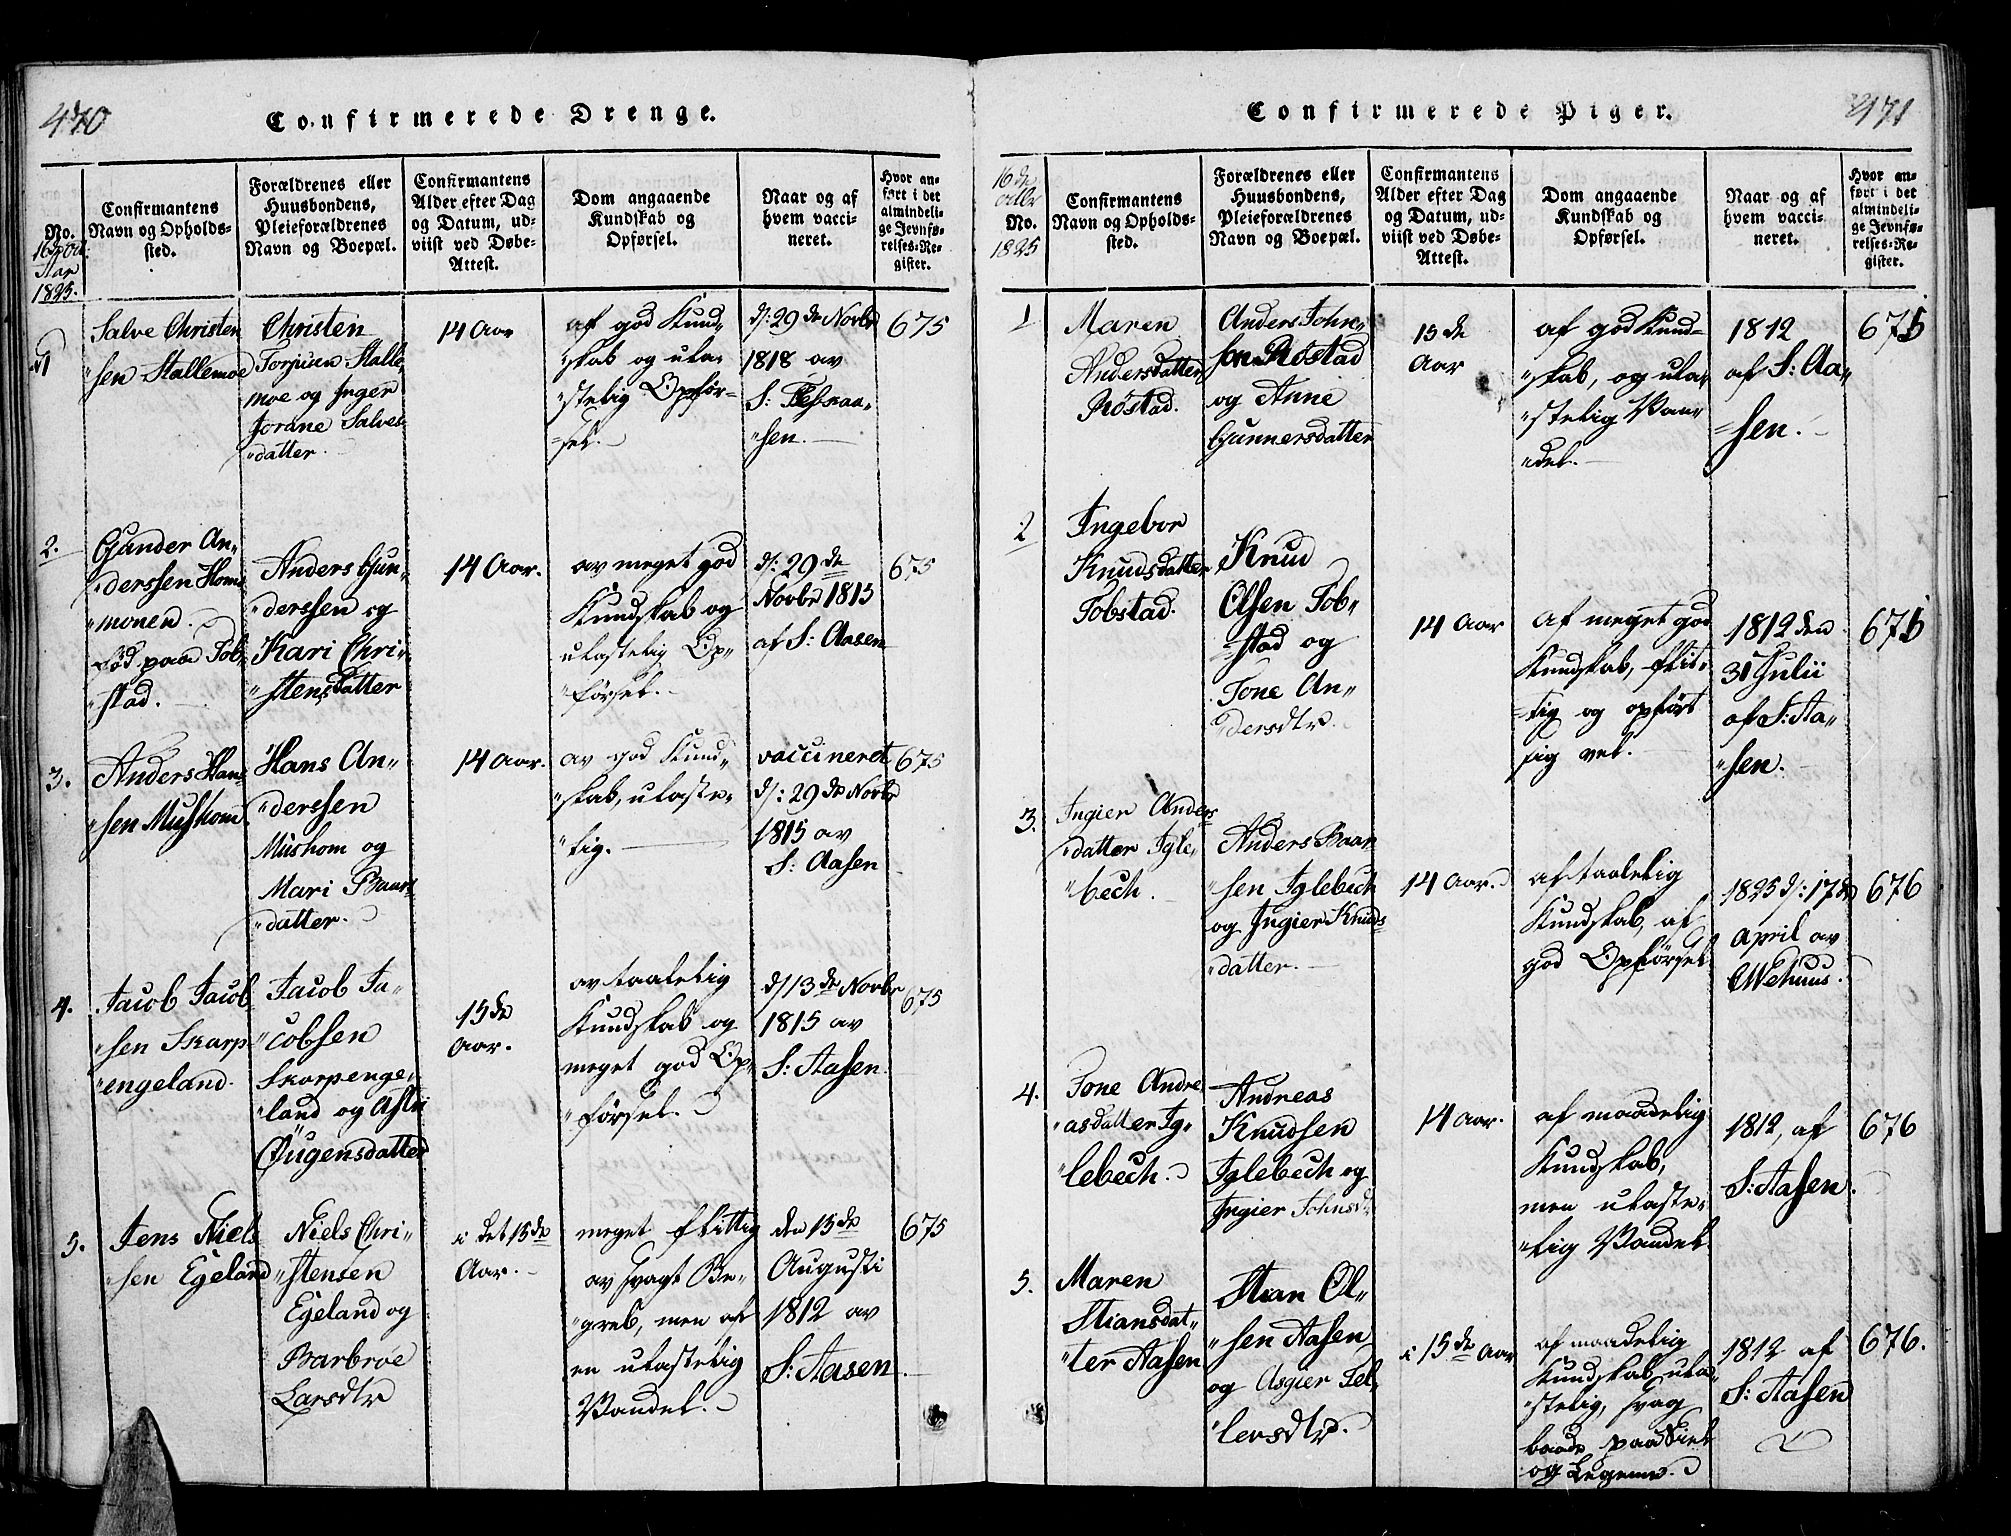 470
Confirmerede Drenge.
No.
16de Oct.
Aar
1825.
Confirmantens
Navn og Opholds-
sted.
Forældrenes eller
Huusbondens,
Pleieforældrenes
Navn og Boepæl.
Confirmantens
Alder efter Dag
og Datum, ud-
viist ved Døbe-
Attest.
Dom angaaende
Kundskab og
Opførsel.
Naar og af
hvem vacci-
neret.
Hvor an-
ført i det
almindeli-
ge Jevnfø-
relses-Re-
gister.
1
Salve Christen
"sen Stallemoe
Christen
Torjusen Stalle,
moe og Inger
Jorane Salves-
"datter.
14 Aar
af god Kund,,
"skab og ula-
"stelig Opfør-
"sel.
d/: 29de Novbr
1818 av
S:
"sen.
675
2.
Gunder An,,
"derssen Hom,
"monen.
fød paa Tob-
"stad.
Anders Gun,,
"derssen og
Kari Chri-
"stensdatter
14 Aar.
av meget god
Kundskab og
ulastelig Op,,
"førsel.
d/: 29de
Novbr 1815
af S: Aasen
675
3.
Anders Han,
"sen Mushom
Hans An,,
"derssen
Mushom og
Mari Baars
"datter.
14 Aar.
av god Kund,,
"skab, ulaste,,
"lig.
vaccineret
d/: 29de Novbr
1815 av
S: Aasen
675
4.
Jacob Jacob
"sen Skarp
"engeland.
Jacob Ja-
"cobsen
Skarpenge,
"land og Astri
Øugensdatter
15de
Aar.
av taalelig
Kundskab og
meget god Op,,
"førsel.
d/ 13de Novbr
1815 av
S: Aasen.
675
5.
Jens Niels
"sen Egeland
Niels Chri-
"stensen
Egeland og
Barbroe
Larsdtr
i det 15de
Aar.
meget flittig
av svagt Be-
"greb, men af
en ulastelig
Vandel.
den 15de
Augusti
1812 av
S: Aasen
675
471
Confirmerede Piger.
16de
No.
1825
Confirmantens
Navn og Opholds-
sted.
Forældrenes eller
Huusbondens,
Pleieforældrenes
Navn og Boepæl.
Confirmantens
Alder efter Dag
og Datum, ud-
viist ved Døbe-
Attest.
Dom angaaende
Kundskab og
Opførsel.
Naar og af
hvem vacci-
neret.
Hvor an-
ført i det
almindeli-
ge Jevnfø-
relses-Re-
gister.
1
Maren
Andersdatter
Røstad.
Anders John,,
sen Røstad
og Anne
Gunnersdatter
15de
Aar
af god Kund-
"skab, og ula-
"stelig Van,,
"del.
1812
af S: Aa,,
"sen.
675
2
Ingebor
Knudsdatter
Tobstad.
Knud
Olsen Tob,,
"stad og
Tone An,,
"dersdtr.
14 Aar
af meget god
Kundskab, flit,,
"tig og opført
sig vel.
1812 den
31 Julii
af S: Aa,,
"sen.
675
3.
Ingier Anders
"datter Igle,
"bech.
Anders Baar
"sen Iglebech
og Ingier Knuds
"datter.
14 Aar.
af taalelig
Kundskab, af
god Opførsel
1825 d/: 17de
April av
Wehuus.
676
4.
Tone Andre
"asdatter Ig,,
"lebech.
Andreas
Knudsen
Iglebech og
Ingier Johnsd
14 Aar.
af maadelig
Kundskab,
men ulaste,,
"lig Vandel.
1812, af
S: Aasen.
676
5.
Maren
Stiansdat,,
"ter Aasen
Stian Ol,,
"sen Aasen
og Asgier Tel,
"lersdtr.
i 15de Aar
af maadelig
Kundskab, ula,,
"stelig, svag
baade paa Siel
og Legeme.
1812 af
S: Aasen
676.